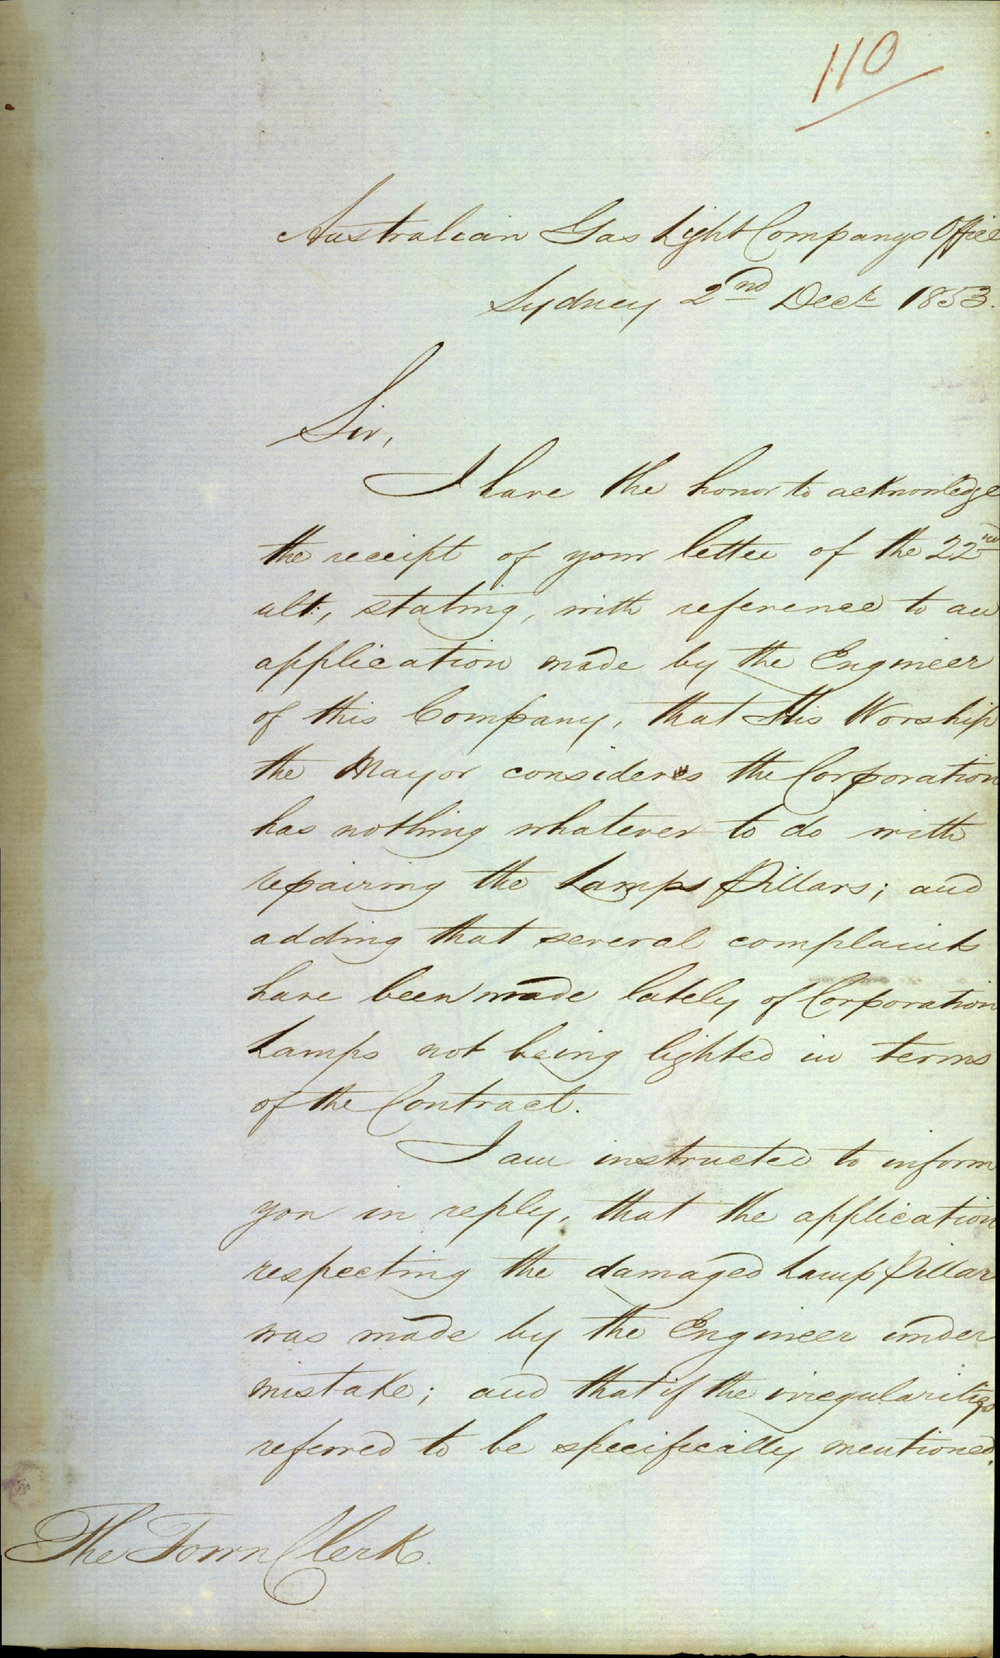 110
Australian Gas Light Companys Office
Sydney 2nd Decr 1853.
Sir,
I have the honor to acknowledge
the receipt of your letter of the 22nd
ult:, stating, with reference to an
application made by the Engineer
of this Company, that His Worship
the Mayor considers the Corporation
has nothing whatever to do with
repairing the Lamps Pillars; and
adding that several complaints
have been made lately of Corporation
Lamps not being lighted in terms
of the Contract.
I am instructed to inform
you in reply, that the application
respecting the damaged Lamp Pillar
was made by the Engineer under
mistake; and that if the irregularities
referred to be specifically mentioned,
The Town Clerk.